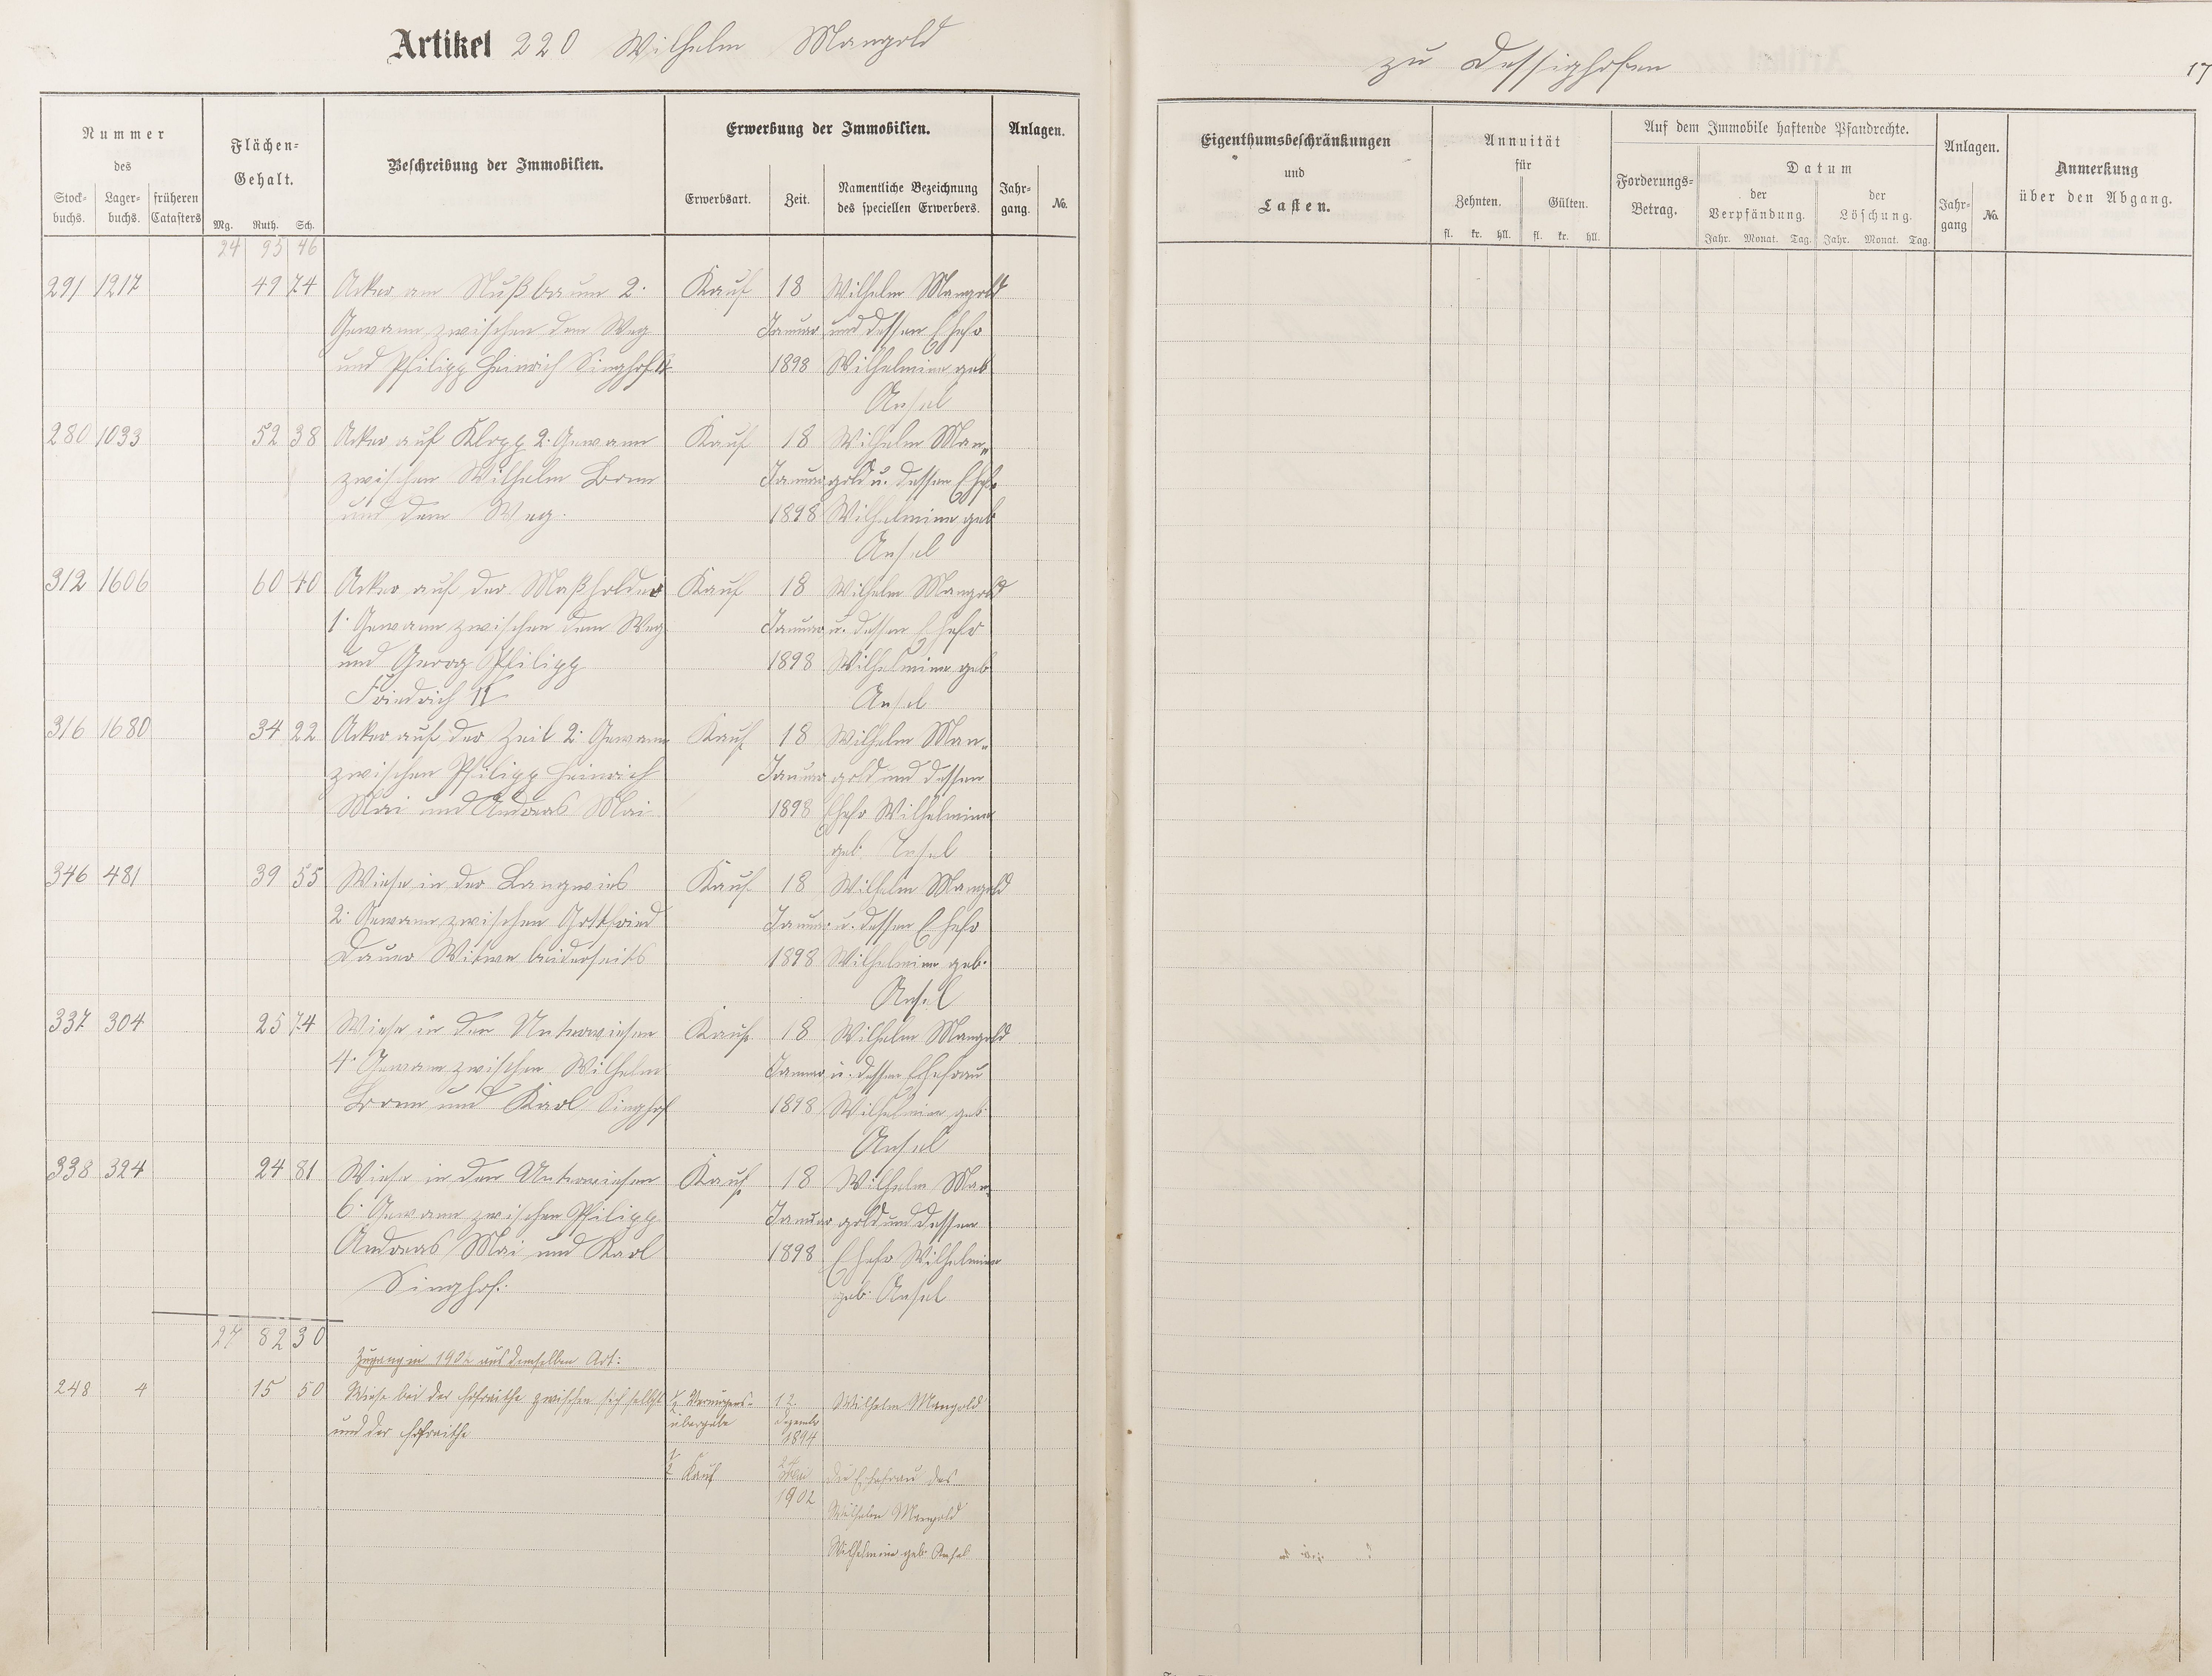 Artikel 220 Wilhelm Mangold
zu Dessighofen
17
Nummer
des
Stock-
buchs.
Lager-
buchs.
früheren
Catasters
Flächen-
Gehalt.
Mg. Ruth. Sch.
Beschreibung der Immobilien.
Erwerbung der Immobilien.
Erwerbsart.
Zeit.
Namentliche Bezeichnung
des speciellen Erwerbers.
Anlagen.
Jahr-
gang.
No.
Eigenthumsbeschränkungen
und
Lasten.
Annuität
für
Zehnten.
Gülten.
fl. kr. hll. fl. kr. hll.
Auf dem Immobile haftende Pfandrechte.
Forderungs-
Betrag.
Datum
der
Verpfändung.
der
Löschung.
Jahr. Monat. Tag. Jahr. Monat. Tag.
Anlagen.
Jahr-
gang
No.
Anmerkung
über den Abgang.
24 95 46
291 1217 49 74 Acker am Nußbaum 2. Kauf 18 Wilhelm Mangold
Gewann zwischen dem Weg Januar und dessen Ehefr
und Philipp Heinrich Singhof II 1898 Wilhelmine geb
Ansel
280 1033 52 38 Acker auf Klopp 2. Gewann Kauf 18 Wilhelm Man„
zwischen Wilhelm Born Januar gold u. dessen Ehefr
und dem Weg. 1898 Wilhelmine geb
Ansel
312 1606 60 40 Acker auf der Maßholder Kauf 18 Wilhelm Mangold
1. Gewann zwischen dem Weg Januar u. dessen Ehefr
und Georg Philipp 1898 Wilhelmine geb
Friedrich II Ansel
316 1680 34 22 Acker auf der Zeil 2. Gewann Kauf 18 Wilhelm Man„
zwischen Philipp Heinrich Januar gold und dessen
Mai und Andreas Mai 1898 Ehefr Wilhelmine
geb. Ansel
346 481 39 55 Wiese in der Langwies Kauf 18 Wilhelm Mangold
2. Gewann zwischen Gottfried Januar u. dessen Ehefr
Dauer Witwe beiderseits 1898 Wilhelmine geb.
Ansel
337 304 25 74 Wiese in den Unterwiesen Kauf 18 Wilhelm Mangold
4. Gewann zwischen Wilhelm Januar u. dessen Ehefrau
Born und Karl Singhof 1898 Wilhelmine geb.
Ansel
338 324 24 81 Wiese in den Unterwiesen Kauf 18 Wilhelm Man„
6. Gewann zwischen Philipp Januar gold und dessen
Andreas Mai und Karl 1898 Ehefr Wilhelmine
Singhof. geb. Ansel
27 82 30
Zugang in 1902 aus demselben Art:
248 4 15 50 Wiese bei der Hofraithe zwischen sich selbst ½ Vermögens- 12. Wilhelm Mangold
und der Hofraithe übergabe Dezemb
1894
½ Kauf Mai die Ehefrau des
1902 Wilhelm Mangold
Wilhelmine geb. Ansel